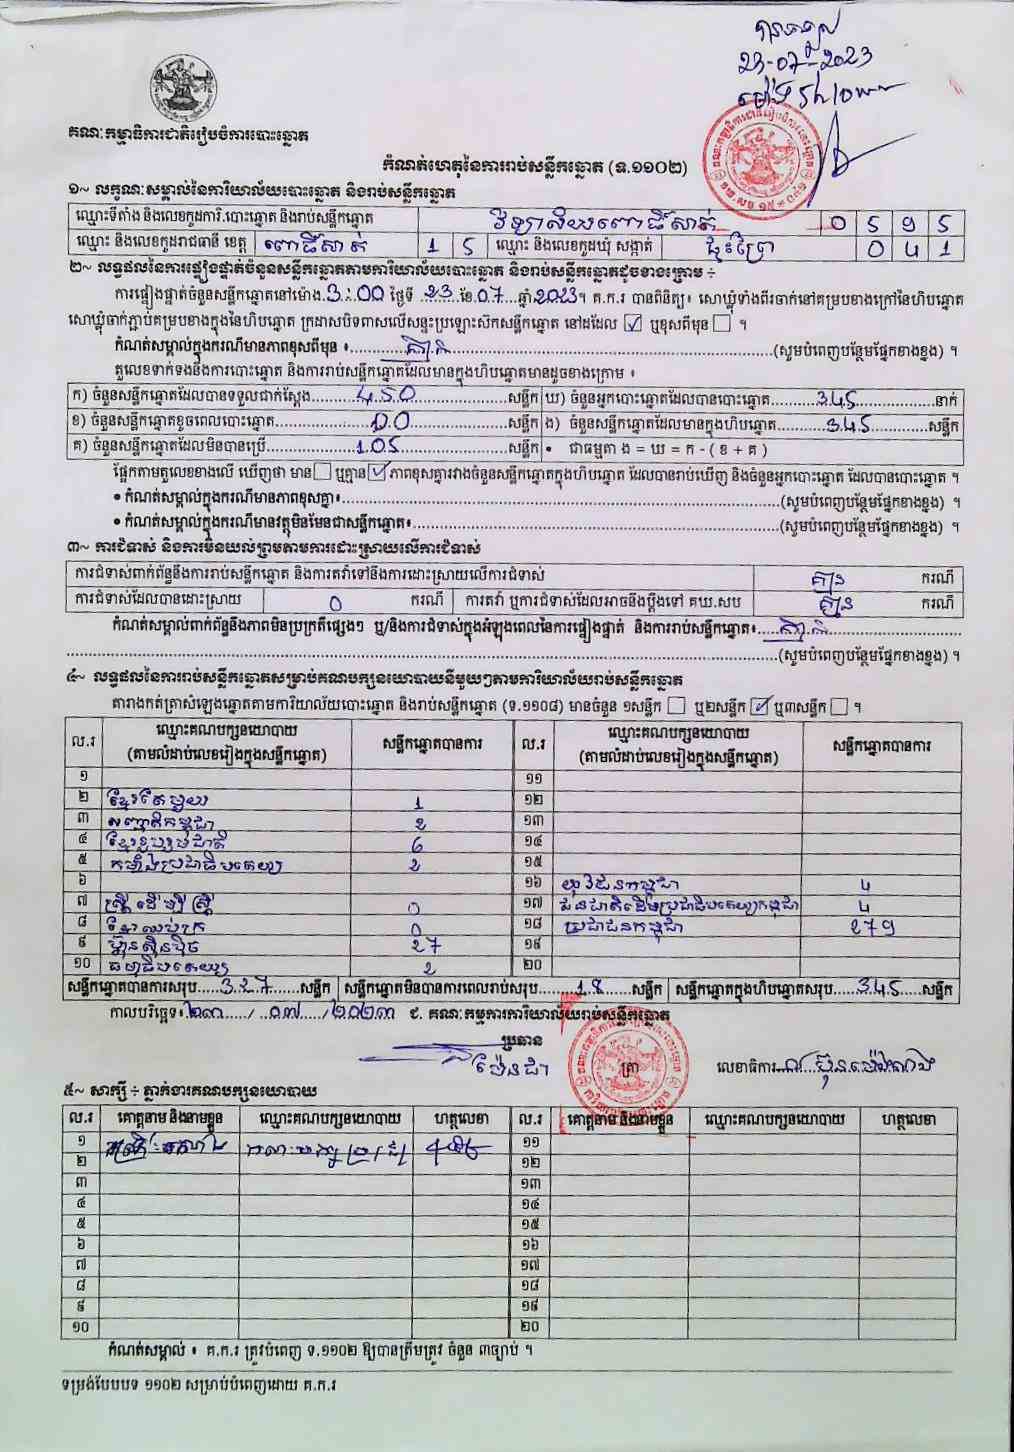 បានទទួល
23-07-2023
ម៉ោង
គណៈកម្មាធិការជាតិរៀបចំការបោះឆ្នោត
កំណត់ហេតុនៃការរាប់សន្លឹកឆ្នោត (ទ.១១០២)
១~ លក្ខណៈសម្គាល់នៃការិយាល័យបោះឆ្នោត និងរាប់សន្លឹកឆ្នោត
ឈ្មោះទីតាំង និងលេខកូដការិ.បោះឆ្នោត និងរាប់សន្លឹកឆ្នោត វិទ្យាល័យពោធិ៍សាត់ 0 5 9 5
ឈ្មោះ និងលេខកូដរាជធានី ខេត្ត ពោធិ៍សាត់ 1 5 ឈ្មោះ និងលេខកូដឃុំ សង្កាត់ ផ្ទះព្រៃ 0 4 1
២~ លទ្ធផលនៃការផ្ទៀងផ្ទាត់ចំនួនសន្លឹកឆ្នោតតាមការិយាល័យបោះឆ្នោត និងរាប់សន្លឹកឆ្នោតដូចខាងក្រោម ÷
ការផ្ទៀងផ្ទាត់ចំនួនសន្លឹកឆ្នោតនៅម៉ោង 3:00 ថ្ងៃទី 23 ខែ 07 ឆ្នាំ 2023។ គ.ក.រ បានពិនិត្យ៖ សោឃ្លុំទាំងពីរចាក់នៅគម្របខាងក្រៅនៃហិបឆ្នោត
សោឃ្លុំចាក់ភ្ជាប់គម្របខាងក្នុងនៃហិបឆ្នោត ក្រដាសបិទពាសលើសន្ទះប្រឡោះស៊កសន្លឹកឆ្នោត នៅដដែល ☑ ឬខុសពីមុន ☐ ។
កំណត់សម្គាល់ក្នុងករណីមានភាពខុសពីមុន ៖ គ្មាន (សូមបំពេញបន្ថែមផ្នែកខាងខ្នង) ។
តួលេខទាក់ទងនឹងការបោះឆ្នោត និងការរាប់សន្លឹកឆ្នោតដែលមានក្នុងហិបឆ្នោតមានដូចខាងក្រោម ៖
ក) ចំនួនសន្លឹកឆ្នោតដែលបានទទួលជាក់ស្តែង 450 សន្លឹក ឃ) ចំនួនអ្នកបោះឆ្នោតដែលបានបោះឆ្នោត 345 នាក់
ខ) ចំនួនសន្លឹកឆ្នោតខូចពេលបោះឆ្នោត 00 សន្លឹក ង) ចំនួនសន្លឹកឆ្នោតដែលមានក្នុងហិបឆ្នោត 345 សន្លឹក
គ) ចំនួនសន្លឹកឆ្នោតដែលមិនបានប្រើ 105 សន្លឹក • ជាធម្មតា ង = ឃ = ក - ( ខ + គ )
ផ្អែកតាមតួលេខខាងលើ ឃើញថា មាន ☐ ឬគ្មាន ☑ ភាពខុសគ្នារវាងចំនួនសន្លឹកឆ្នោតក្នុងហិបឆ្នោត ដែលបានរាប់ឃើញ និងចំនួនអ្នកបោះឆ្នោត ដែលបានបោះឆ្នោត ។
• កំណត់សម្គាល់ក្នុងករណីមានភាពខុសគ្នា៖ (សូមបំពេញបន្ថែមផ្នែកខាងខ្នង) ។
• កំណត់សម្គាល់ក្នុងករណីមានវត្ថុមិនមែនជាសន្លឹកឆ្នោត៖ (សូមបំពេញបន្ថែមផ្នែកខាងខ្នង) ។
៣~ ការជំទាស់ និងការមិនយល់ព្រមតាមការដោះស្រាយលើការជំទាស់
ការជំទាស់ពាក់ព័ន្ធនឹងការរាប់សន្លឹកឆ្នោត និងការតវ៉ាទៅនឹងការដោះស្រាយលើការជំទាស់ គ្មាន ករណី
ការជំទាស់ដែលបានដោះស្រាយ 0 ករណី ការតវ៉ា ឬការជំទាស់ដែលអាចនឹងប្តឹងទៅ គឃ.សប គ្មាន ករណី
កំណត់សម្គាល់ពាក់ព័ន្ធនឹងភាពមិនប្រក្រតីផ្សេងៗ ឬ/និងការជំទាស់ក្នុងអំឡុងពេលនៃការផ្ទៀងផ្ទាត់ និងការរាប់សន្លឹកឆ្នោត៖ គ្មាន
(សូមបំពេញបន្ថែមផ្នែកខាងខ្នង) ។
៤~ លទ្ធផលនៃការរាប់សន្លឹកឆ្នោតសម្រាប់គណបក្សនយោបាយនីមួយៗតាមការិយាល័យរាប់សន្លឹកឆ្នោត
តារាងកត់ត្រាសំឡេងឆ្នោតតាមការិយាល័យបោះឆ្នោត និងរាប់សន្លឹកឆ្នោត (ទ.១១០៨) មានចំនួន ១សន្លឹក ☐ ឬ២សន្លឹក ☑ ឬ៣សន្លឹក ☐ ។
ល.រ ឈ្មោះគណបក្សនយោបាយ (តាមលំដាប់លេខរៀងក្នុងសន្លឹកឆ្នោត) សន្លឹកឆ្នោតបានការ ល.រ ឈ្មោះគណបក្សនយោបាយ (តាមលំដាប់លេខរៀងក្នុងសន្លឹកឆ្នោត) សន្លឹកឆ្នោតបានការ
១ ១១
២ ខ្មែរតែមួយ 1 ១២
៣ សញ្ជាតិកម្ពុជា 2 ១៣
៤ ខ្មែររួបរួមជាតិ 6 ១៤
៥ កម្លាំងប្រជាធិបតេយ្យ 2 ១៥
៦ ១៦ យុវជនកម្ពុជា 4
៧ ស្ត្រីដើម្បីស្ត្រី 0 ១៧ ជនជាតិដើមប្រជាធិបតេយ្យកម្ពុជា 4
៨ ខ្មែរឈប់ក្រ 0 ១៨ ប្រជាជនកម្ពុជា 279
៩ ហ៊្វុនស៊ិនប៉ិច 27 ១៩
១០ ធម្មាធិបតេយ្យ 2 ២០
សន្លឹកឆ្នោតបានការសរុប 327 សន្លឹក សន្លឹកឆ្នោតមិនបានការពេលរាប់សរុប 18 សន្លឹក សន្លឹកឆ្នោតក្នុងហិបឆ្នោតសរុប 345 សន្លឹក
កាលបរិច្ឆេទ៖ ២៣ / ០៧ / ២០២៣ ជ. គណៈកម្មការការិយាល័យរាប់សន្លឹកឆ្នោត
ប្រធាន
ត្រា លេខាធិការ
៥~ សាក្សី ÷ ភ្នាក់ងារគណបក្សនយោបាយ
ល.រ គោត្តនាម និងនាមខ្លួន ឈ្មោះគណបក្សនយោបាយ ហត្ថលេខា ល.រ គោត្តនាម និងនាមខ្លួន ឈ្មោះគណបក្សនយោបាយ ហត្ថលេខា
១ ១១
២ ១២
៣ ១៣
៤ ១៤
៥ ១៥
៦ ១៦
៧ ១៧
៨ ១៨
៩ ១៩
១០ ២០
កំណត់សម្គាល់ ៖ គ.ក.រ ត្រូវបំពេញ ទ.១១០២ ឱ្យបានត្រឹមត្រូវ ចំនួន ៣ច្បាប់ ។
ទម្រង់បែបបទ ១១០២ សម្រាប់បំពេញដោយ គ.ក.រ